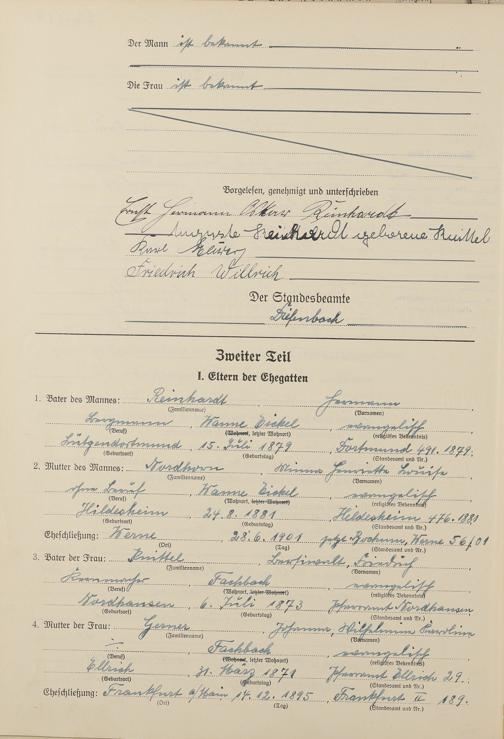 Der Mann ist bekannt
Die Frau ist bekannt
Vorgelesen, genehmigt und unterschrieben
Ernst Hermann Oskar Reinhardt
Auguste Reinhardt geborene Knittel
Karl
Friedrich Willrich
Der Standesbeamte
Diefenbach
Zweiter Teil
I. Eltern der Ehegatten
1. Vater des Mannes: Reinhardt Hermann
(Familienname) (Vornamen)
Bergmann, Wanne Eickel, evangelisch
(Beruf) (Wohnort, letzter Wohnort) (religiöses Bekenntnis)
Lütgendortmund 15. Juli 1879 Dortmund 491. 1879.
(Geburtsort) (Geburtstag) (Standesamt und Nr.)
2. Mutter des Mannes: Nordhorn Minna Henriette Louise
(Familienname) (Vornamen)
ohne Beruf, Wanne Eickel evangelisch
(Beruf) (Wohnort, letzter Wohnort) (religiöses Bekenntnis)
Hildesheim 24. 8. 1881 Hildesheim 476. 1881
(Geburtsort) (Geburtstag) (Standesamt und Nr.)
Eheschließung: Werne 28. 6. 1901 Bochum, Werne 56/01
(Ort) (Tag) (Standesamt und Nr.)
3. Vater der Frau: Knittel, Friedrich
(Familienname) (Vornamen)
Fachbach evangelisch
(Beruf) (Wohnort, letzter Wohnort) (religiöses Bekenntnis)
Nordhausen 6. Juli 1873 Pfarramt Nordhausen
(Geburtsort) (Geburtstag) (Standesamt und Nr.)
4. Mutter der Frau: Johanna, Wilhelmine Karoline
(Familienname) (Vornamen)
Fachbach evangelisch
(Beruf) (Wohnort, letzter Wohnort) (religiöses Bekenntnis)
Ellrich 31. März 1871 Pfarramt Ellrich 29.
(Geburtsort) (Geburtstag) (Standesamt und Nr.)
Eheschließung: Frankfurt a/Main 14. 12. 1895 Frankfurt II 189.
(Ort) (Tag) (Standesamt und Nr.)